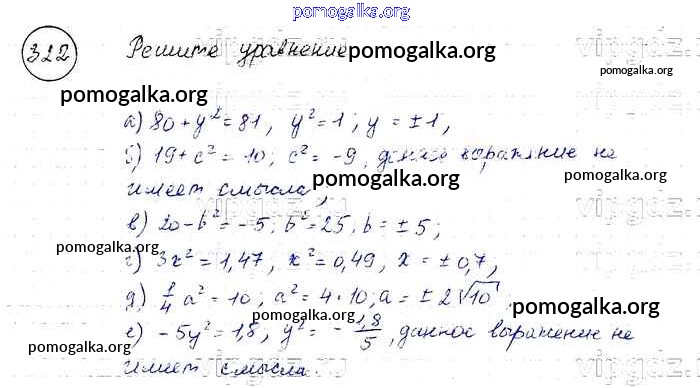 pomogalka.org
322 Решите уравнение pomogalka.org
pomogalka.org
а) 80 + y² = 81, y² = 1; y = ±1;
б) 19 + c² = 10; c² = -9, данное выражение не
имеет смысла; pomogalka.org pomogalka.org
в) 20 - b² = -5; b² = 25, b = ±5;
pomogalka.org pomogalka.org
г) 3x² = 1,47, x² = 0,49, x = ±0,7;
д) 1/4 a² = 10; a² = 4·10, a = ±2√10
pomogalka.org pomogalka.org
е) -5y² = 1,8; y² = -1,8/5, данное выражение не
pomogalka.org
имеет смысла.